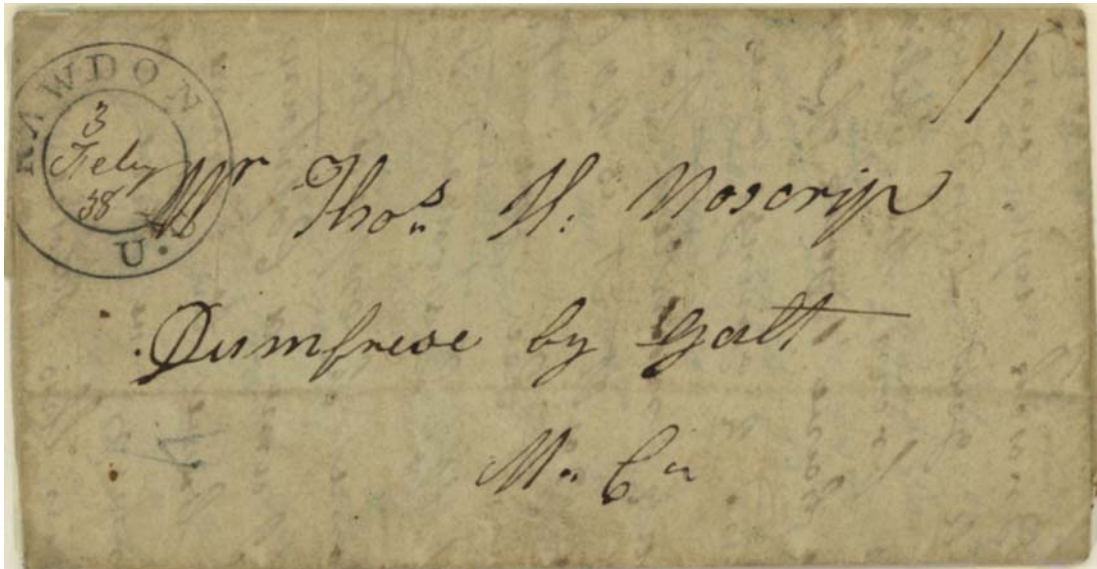 RAWDON
3
Feby
38
U.C
11
Mr Thos. H: Moscrip
Dumfrese by Galt